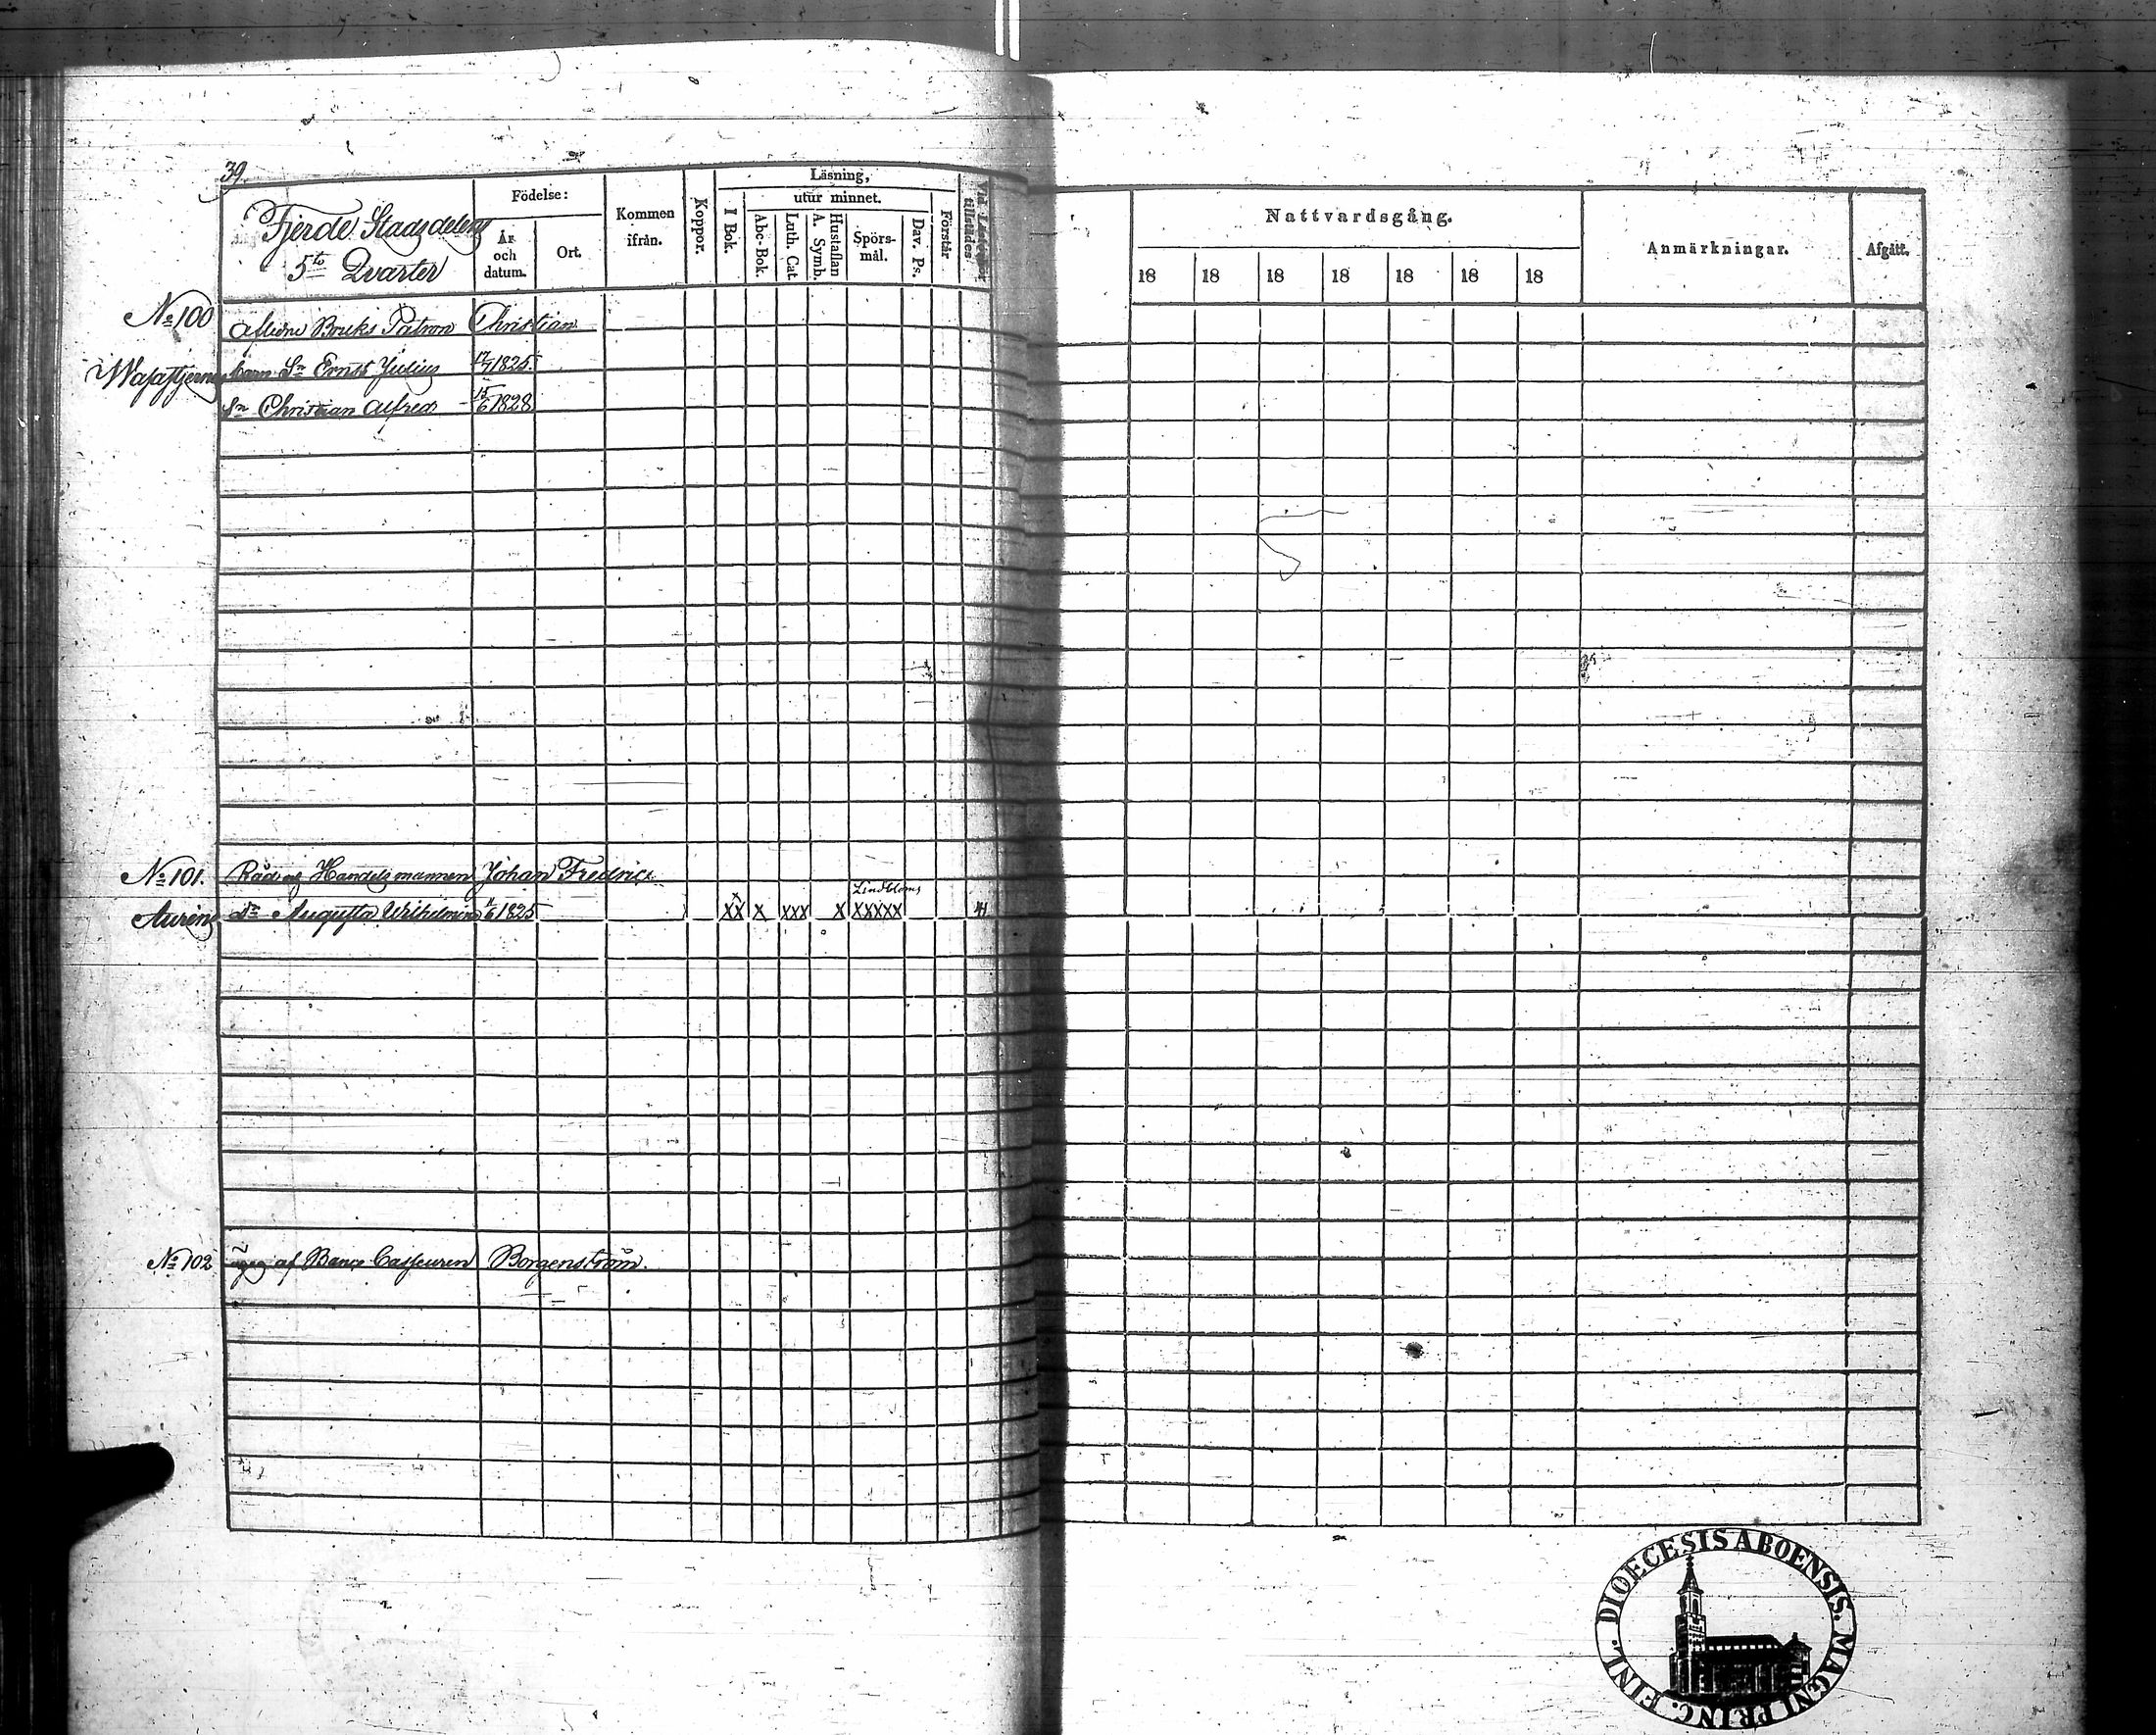 39.
Fjerde Stadsdelens
5te Qvarter
Födelse:
År och datum.
Ort.
Kommen ifrån.
Koppor.
Läsning,
I Bok.
utur minnet.
Abc-Bok.
Luth. Cat.
A. Symb. Hustaflan
Spörs-mål.
Dav. Ps.
Förstår
Vid Läseförhör tillstädes
Nattvardsgång.
18 18 18 18 18 18 18
Anmärkningar.
Afgått.
No 100 Aflidne Bruks Patron Christian
Wasastjernas barn Sn Ernst Julius 17/7 1825.
Sn Christian Alfred 15/6 1828
No 101. Råd og Handelsmannen Johan Fredric
Lindbloms
Aurens dr Augusta Wilhelmina 11/6 1825 XXX X XXX X XXXXX 41
No 102 äges af Banco Casseuren Borgenström.
DIOECESIS ABOENSIS. MAGNI PRINC. FINL.